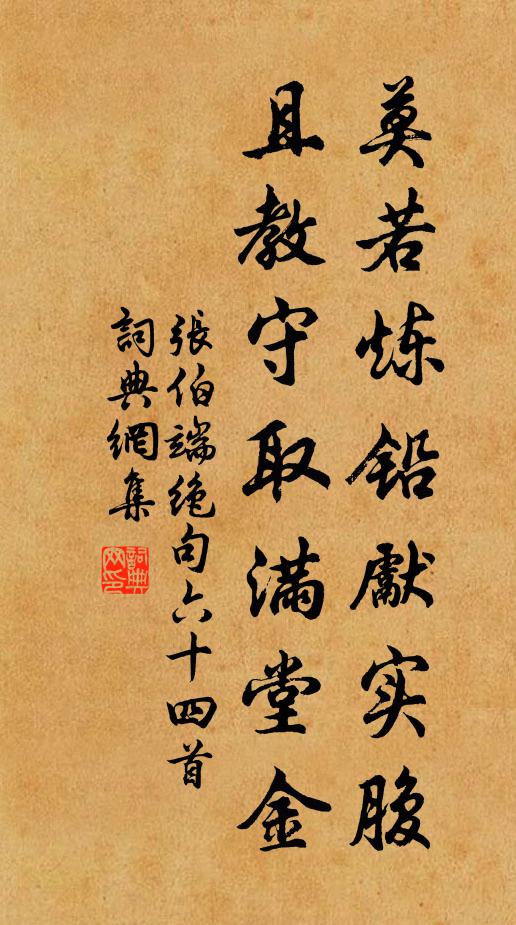 莫若炼铅獻实腹
且教守取滿堂金
張伯端绝句六十四首
詞典網集
詞典网印